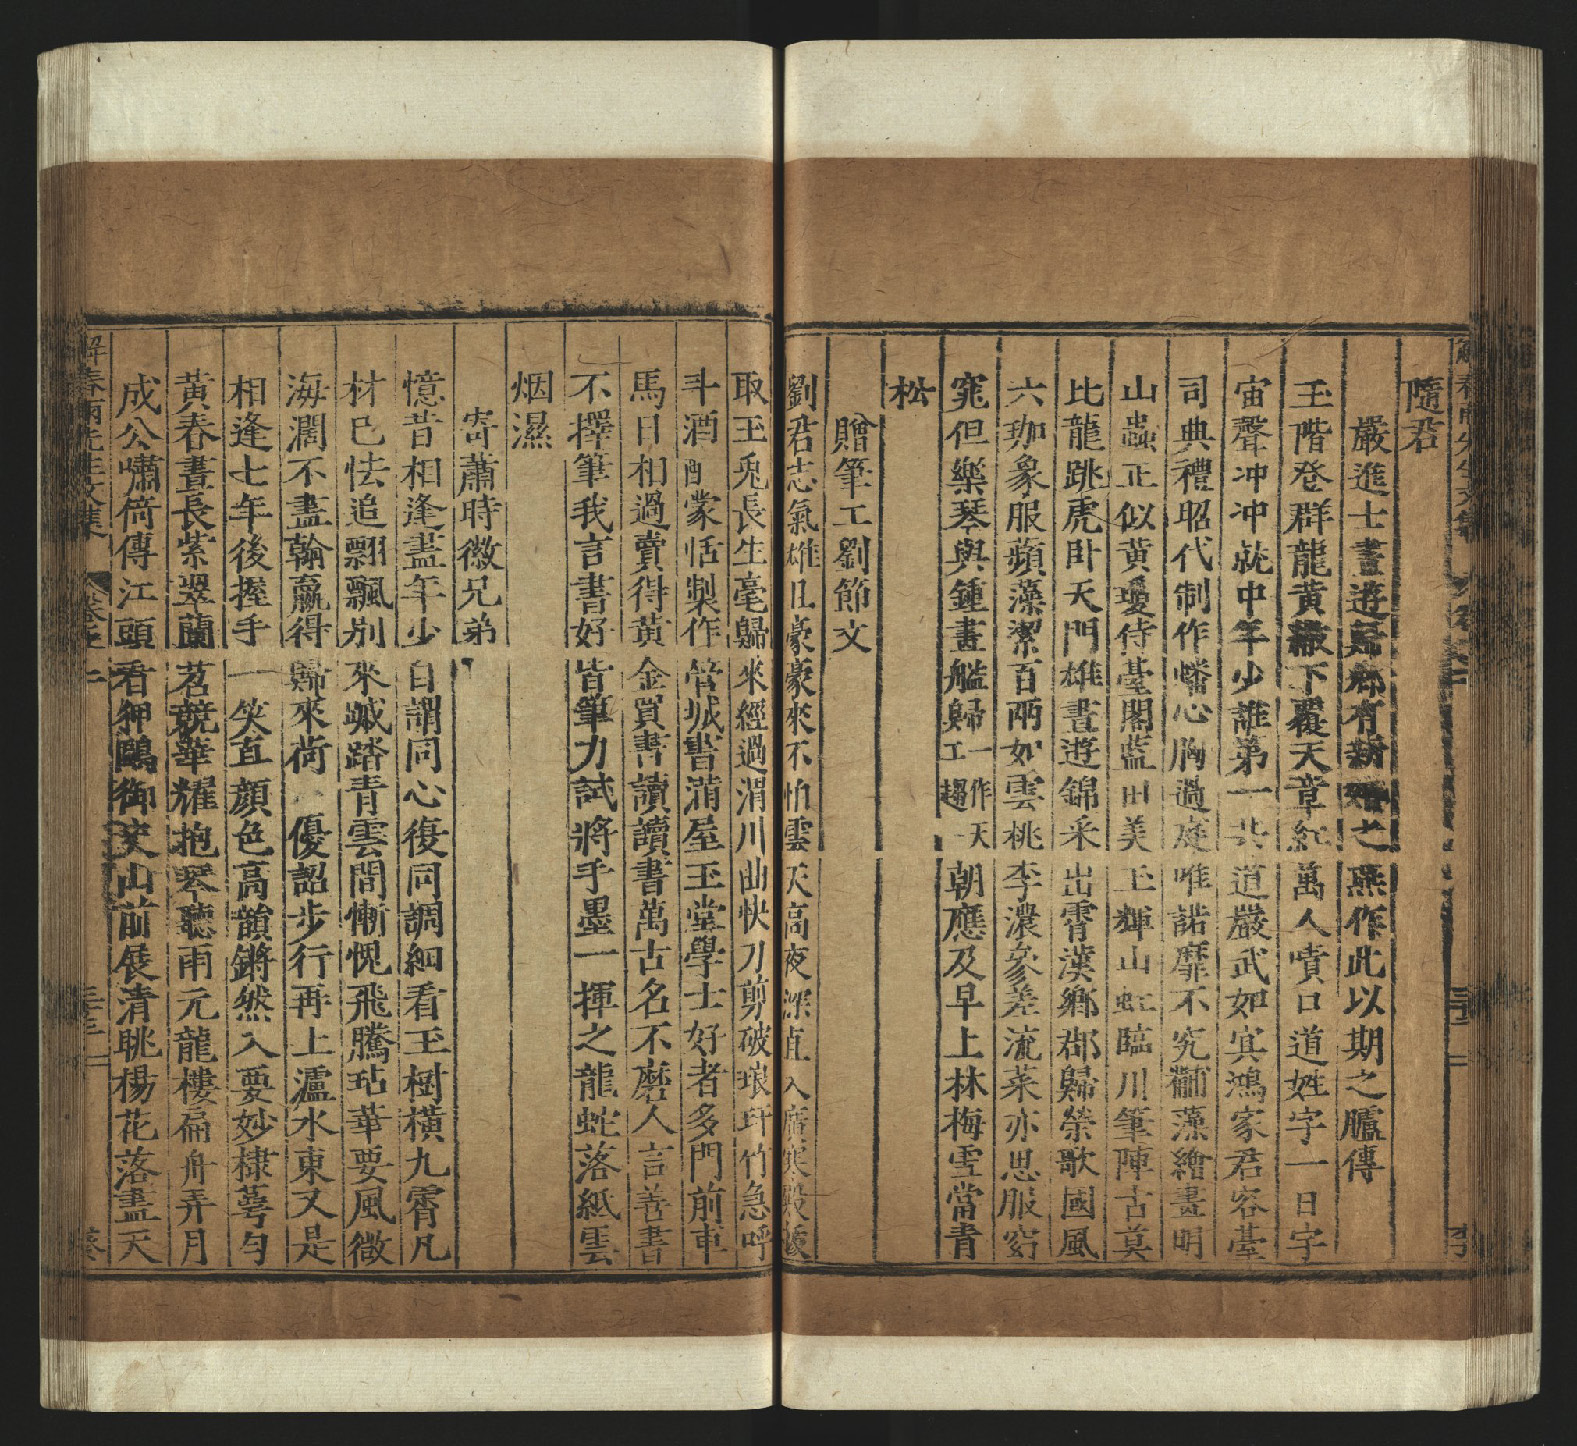 隨君
嚴進士晝遊歸鄉有新之燕作此以期之臚傳
玉階登群龍黃繖下覆天章紅萬人噴口道姓字一日字
宙聲冲冲就中年少誰第一共道嚴武如寅鴻家君容臺
司典禮昭代制作幡心胸過庭唯諾靡不究黼藻繪畫明
山蟲正似黄瓊侍臺閣藍田美玉輝山虹臨川筆陣古莫
比龍跳虎卧天門雄晝遊錦釆出霄漢鄉郡歸榮歌國風
六珈象服蘋藻潔百兩如雲桃李濃參差流菜亦思服窈
窕但樂琴與鍾畫艦歸工一作趨一天朝應及早上林梅雪常青
松
贈筆工劉節文
劉君志氣雄且豪豪來不怕雲天高夜深直入廣寒殿
取玉兎長生毫歸來經過渭川曲快刀剪破琅玕竹急呼
斗酒酹蒙恬製作管城書滿屋玉堂學士好者多門前車
馬日相過賣得黃金買書讀讀書萬古名不磨人言善書
不擇筆我言書好皆筆力試將手墨一揮之龍蛇落紙雲
烟濕
寄蕭時徽兄弟
憶昔相逢盡年少自謂同心復同調細看玉樹橫九霄凡
材已怯追翾飄别來蹴踏青雲間慚愧飛騰玷華要風微
海濶不盡翰羸得歸來荷優詔步行再上瀘水東又是
相逢七年後握手一笑直顏色高韻鏘然入要妙棣萼勻
黃春晝長紫翠蘭茗競華耀抱琴聽雨元龍樓扁舟弄月
成公嘯倚傳江頭看狎鷗御史山前展清眺楊花落盡天
解春雨先生文集 卷之二 三十二